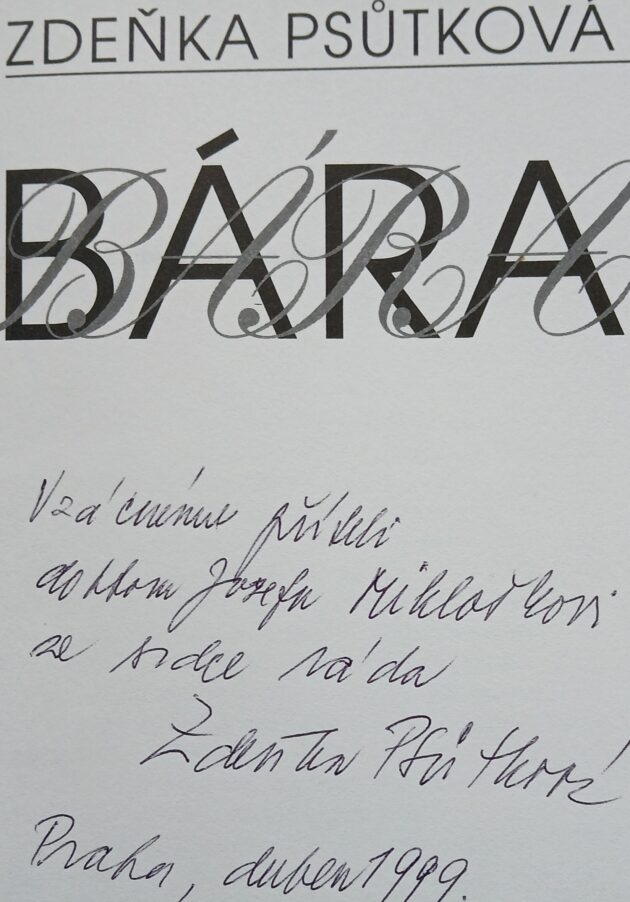 ZDEŇKA PSŮTKOVÁ
BÁRA
Vzácnému příteli
doktoru Josefu Mikloškovi
ze srdce ráda
Zdeňka Psůtková
Praha, duben 1999.